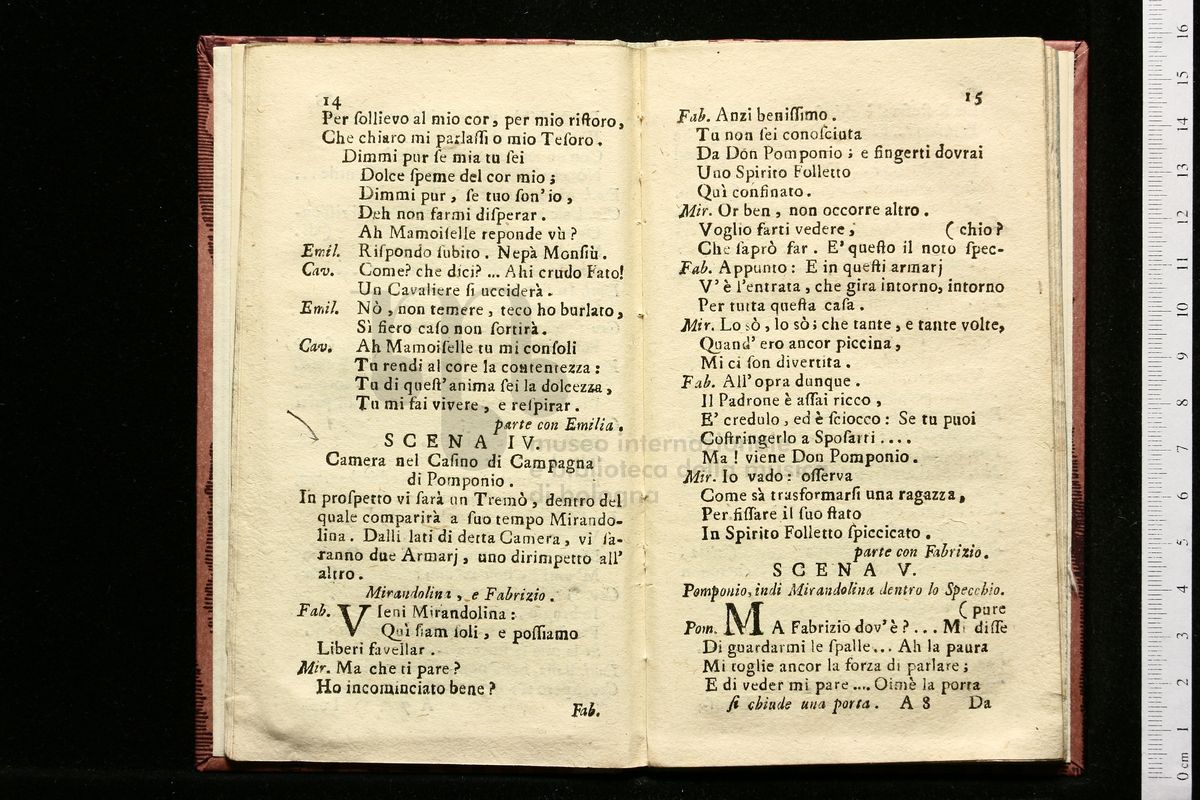 14
Per ſollievo al mio cor, per mio riſtoro,
Che chiaro mi parlaſſi o mio Teſoro.
Dimmi pur ſe mia tu ſei
Dolce ſpeme del cor mio;
Dimmi pur, ſe tuo ſon'io,
Deh non farmi diſperar.
Ah Mamoiſelle reponde vù?
Emil. Riſpondo ſubito. Nepà Monſiù.
Cav. Come? che dici? ... Ahi crudo Fato!
Un Cavaliere ſi ucciderà.
Emil. Nò, non temere, teco ho burlato,
Sì fiero caſo non ſortirà.
Cav. Ah Mamoiſelle tu mi conſoli
Tu rendi al core la contentezza:
Tu di queſt'anima ſei la dolcezza,
Tu mi fai vivere, e reſpirar.
parte con Emilia.
SCENA IV.
Camera nel Caſino di Campagna
di Pomponio.
In proſpetto vi ſarà un Tremò, dentro del
quale comparirà a ſuo tempo Mirando-
lina. Dalli lati di detta Camera, vi ſa-
ranno due Armarj, uno dirimpetto all'
altro.
Mirandolina, e Fabrizio.
Fab. VIeni Mirandolina:
Quì ſiam ſoli, e poſſiamo
Liberi favellar.
Mir. Ma che ti pare?
Ho incominciato bene?
Fab.
15
Fab. Anzi beniſſimo.
Tu non ſei conoſciuta
Da Don Pomponio; e fingerti dovrai
Uno Spirito Folletto
Quì confinato.
Mir. Or ben, non occorre altro.
Voglio farti vedere, (chio?
Che ſaprò far. E' queſto il noto ſpec-
Fab. Appunto: E in queſti armarj
V'è l'entrata, che gira intorno, intorno
Per tutta queſta caſa.
Mir. Lo sò, lo sò; che tante, e tante volte,
Quand' ero ancor piccina,
Mi ci ſon divertita.
Fab. All'opra dunque.
Il Padrone è aſſai ricco,
E' credulo, ed è ſciocco: Se tu puoi
Coſtringerlo a Spoſarti ....
Ma! viene Don Pomponio.
Mir. Io vado: oſſerva
Come sà trasformarſi una ragazza,
Per fiſſare il ſuo ſtato
In Spirito Folletto ſpiccicato.
parte con Fabrizio.
SCENA V.
Pomponio, indi Mirandolina dentro lo Specchio.
(pure
Pom. MA Fabrizio dov'è? ... Mi diſſe
Di guardarmi le ſpalle... Ah la paura
Mi toglie ancor la forza di parlare;
E di veder mi pare .... Oimè la porta
ſi chiude una porta. A 8 Da
museo internazionale
e biblioteca della musica
di bologna